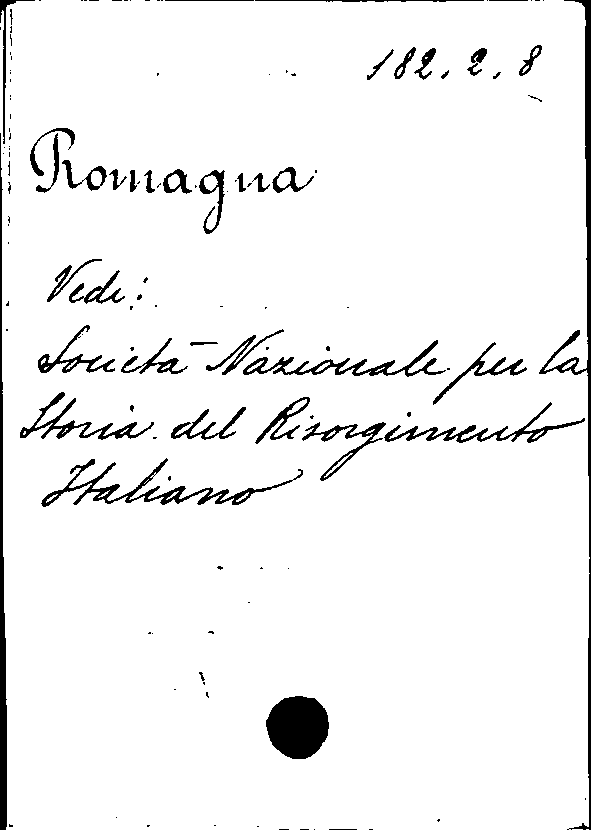 182.2.8
Romagna
Vedi:
Società Nazionale per la
Storia del Risorgimento
Italiano